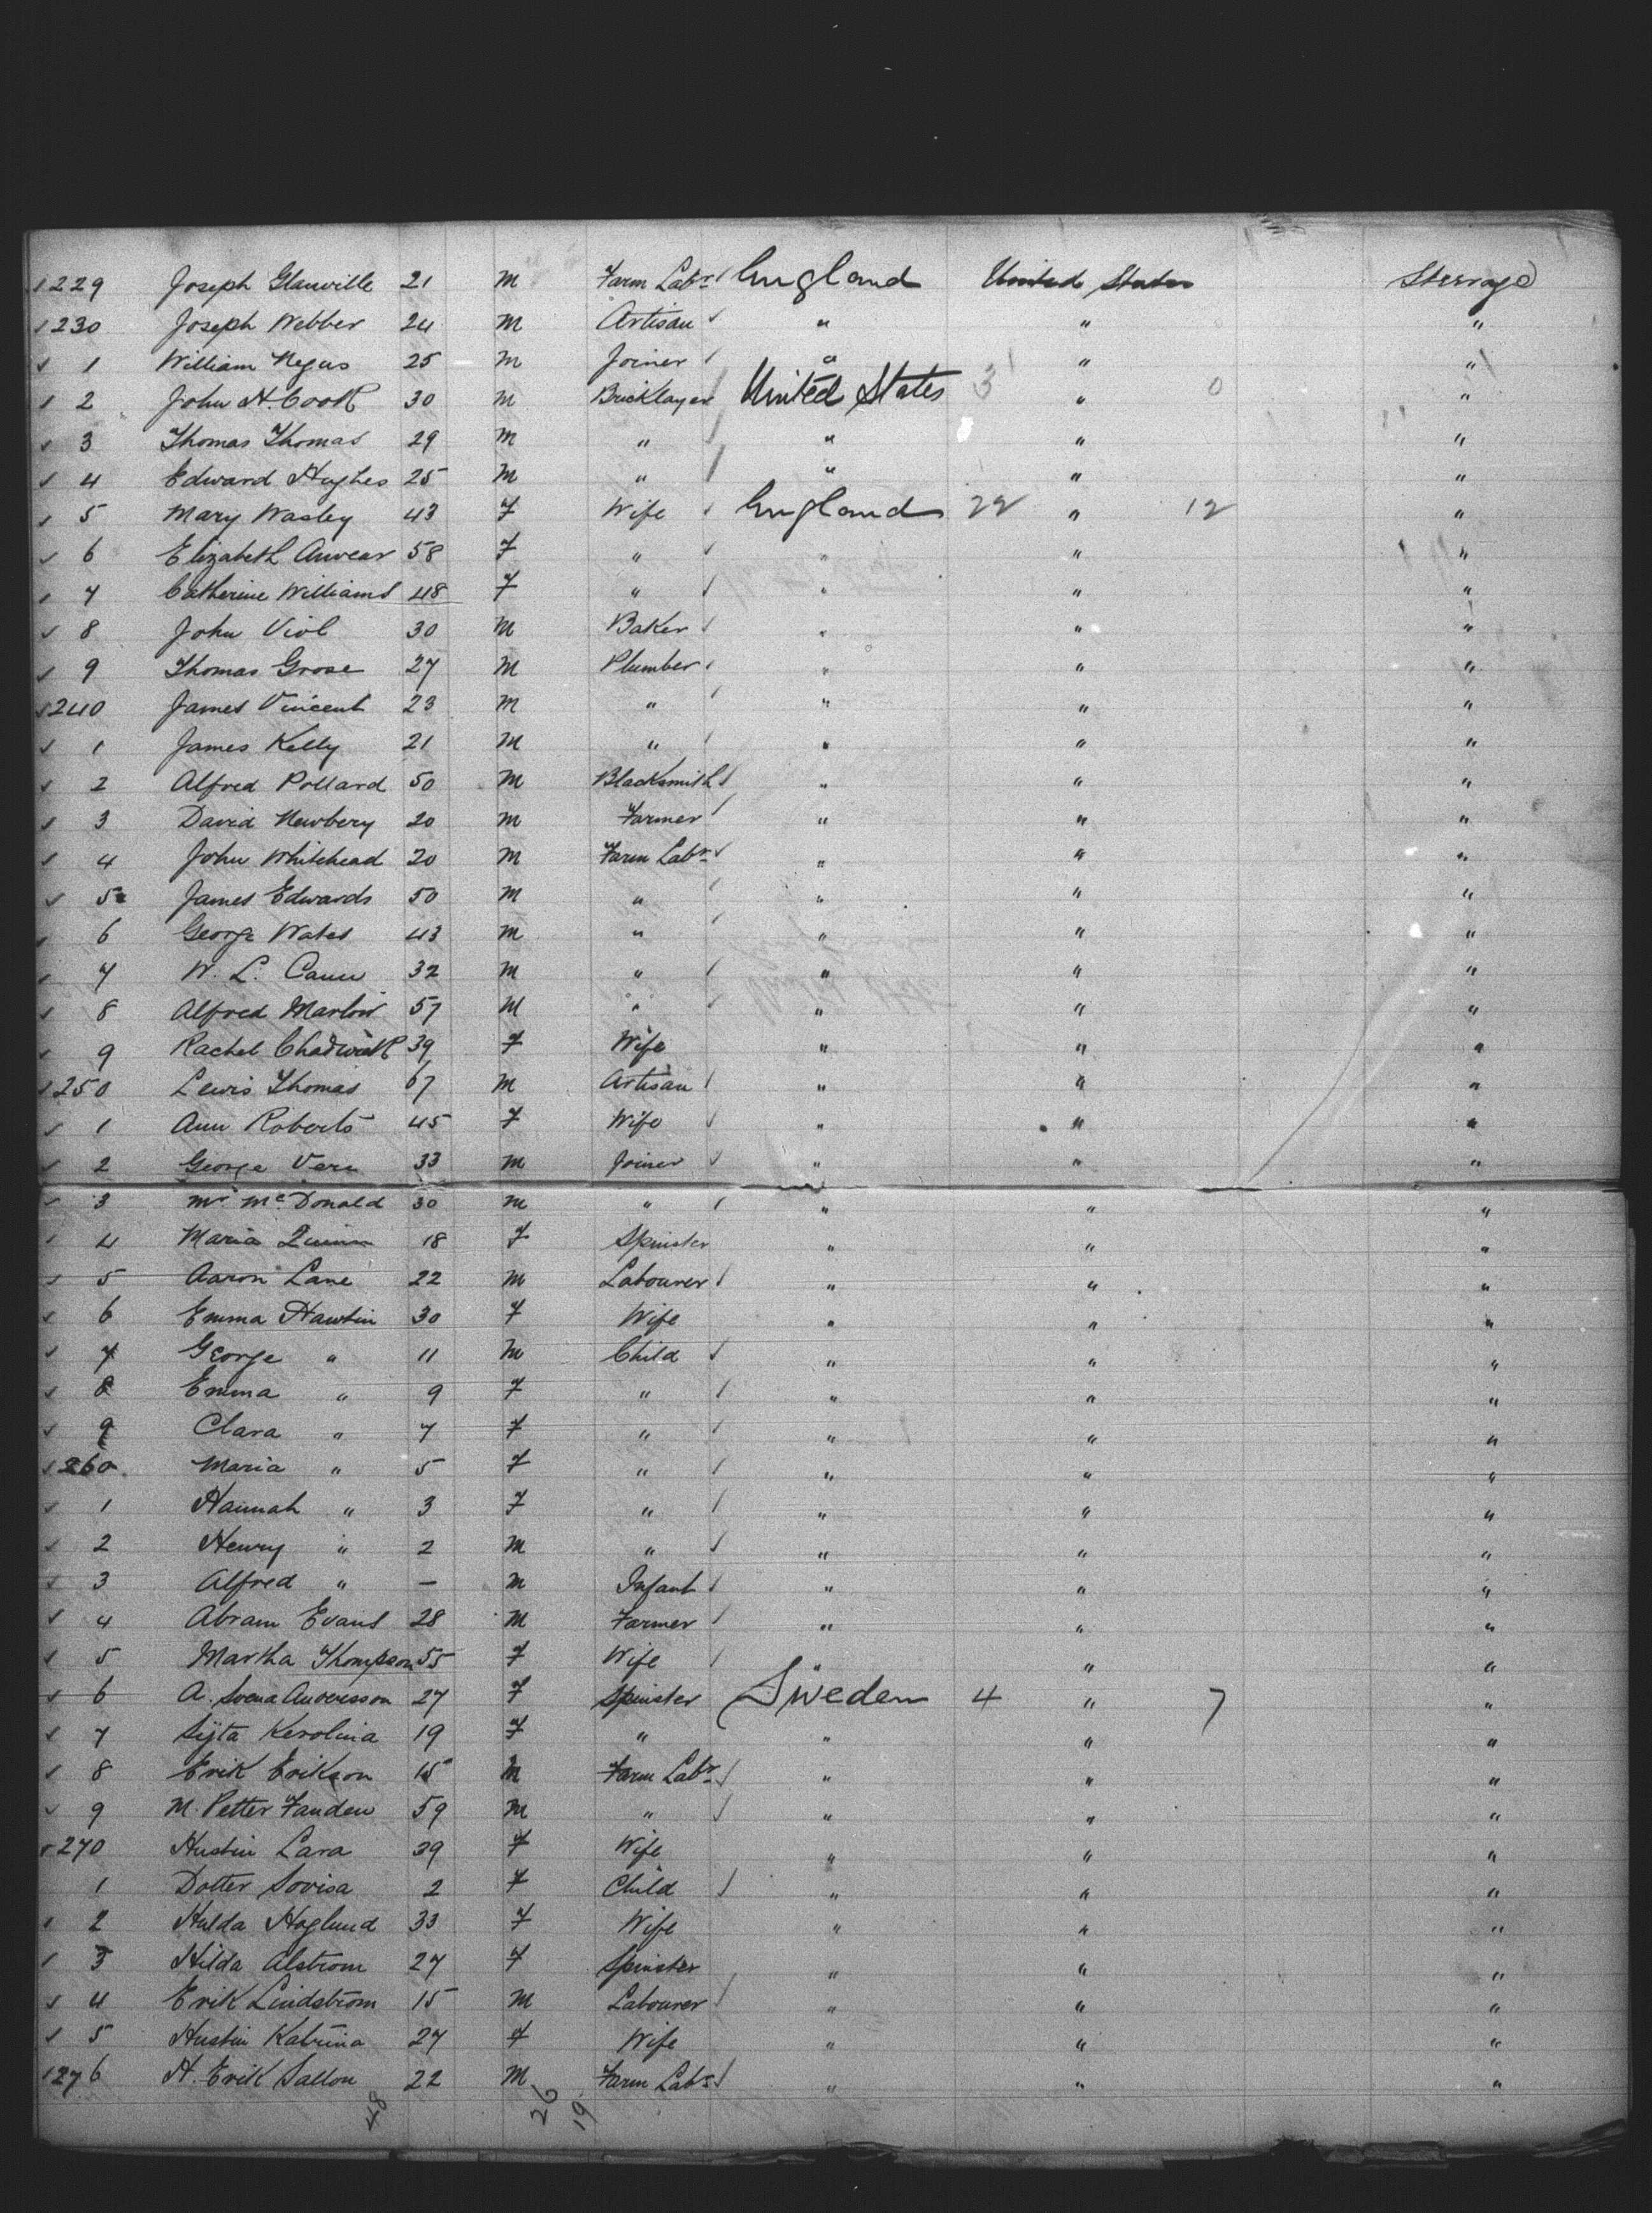 229 Joseph Glanville 21 M Farm Labr England United States Steerage
230 Joseph Webber 24 M Artisan " " "
1 William Negus 25 M Joiner " " "
2 John H. Cook 30 M Bricklayer United States 3 " 0 "
3 Thomas Thomas 29 M " " " "
4 Edward Hughes 25 M " " " "
5 Mary Wasley 43 F Wife England 22 " 12 "
6 Elizabeth Anvear 58 F " " " "
7 Catherine Williams 48 F " " " "
8 John Viol 30 M Baker " " "
9 Thomas Grose 27 M Plumber " " "
240 James Vincent 23 M " " " "
1 James Kelly 21 M " " " "
2 Alfred Pollard 50 M Blacksmith " " "
3 David Newbery 20 M Farmer " " "
4 John Whitehead 20 M Farm Labr " " "
5 James Edwards 50 M " " " "
6 George Wates 43 M " " " "
7 W. L. Cann 32 M " " " "
8 Alfred Marlow 57 M " " " "
9 Rachel Chadwick 39 F Wife " " "
250 Lewis Thomas 67 M Artisan " " "
1 Ann Roberts 45 F Wife " " "
2 George Vern 33 M Joiner " " "
3 Mr McDonald 30 M " " " "
4 Maria Quinn 18 F Spinster " " "
5 Aaron Lane 22 M Labourer " " "
6 Emma Hawtin 30 F Wife " " "
7 George " 11 M Child " " "
8 Emma " 9 F " " " "
9 Clara " 7 F " " " "
260 Maria " 5 F " " " "
1 Hannah " 3 F " " " "
2 Henry " 2 M " " " "
3 Alfred " — M Infant " " "
4 Abram Evans 28 M Farmer " " "
5 Martha Thompson 55 F Wife " " "
6 A. Svena Anderssson 27 F Spinster Sweden 4 " 7 "
7 Sijta Kerolina 19 F " " " "
8 Erik Erikson 15 M Farm Labr " " "
9 M. Petter Fanden 59 M " " " "
270 Hustin Lara 39 F Wife " " "
1 Dotter Sovisa 2 F Child " " "
2 Hulda Hoglund 33 F Wife " " "
3 Hilda Alstrom 27 F Spinster " " "
4 Erik Lindstrom 15 M Labourer " " "
5 Hustin Katrina 27 F Wife " " "
276 H. Erik Sallon 22 M Farm Labr " " "
48 26 19